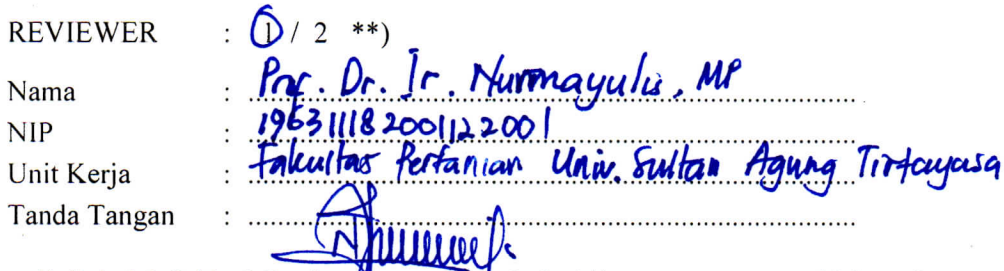 REVIEWER : 1 / 2 **)
Nama : Prof. Dr. Ir. Nurmayulis, MP
NIP : 196311182001122001
Unit Kerja : Fakultas Pertanian Univ. Sultan Agung Tirtayasa
Tanda Tangan :